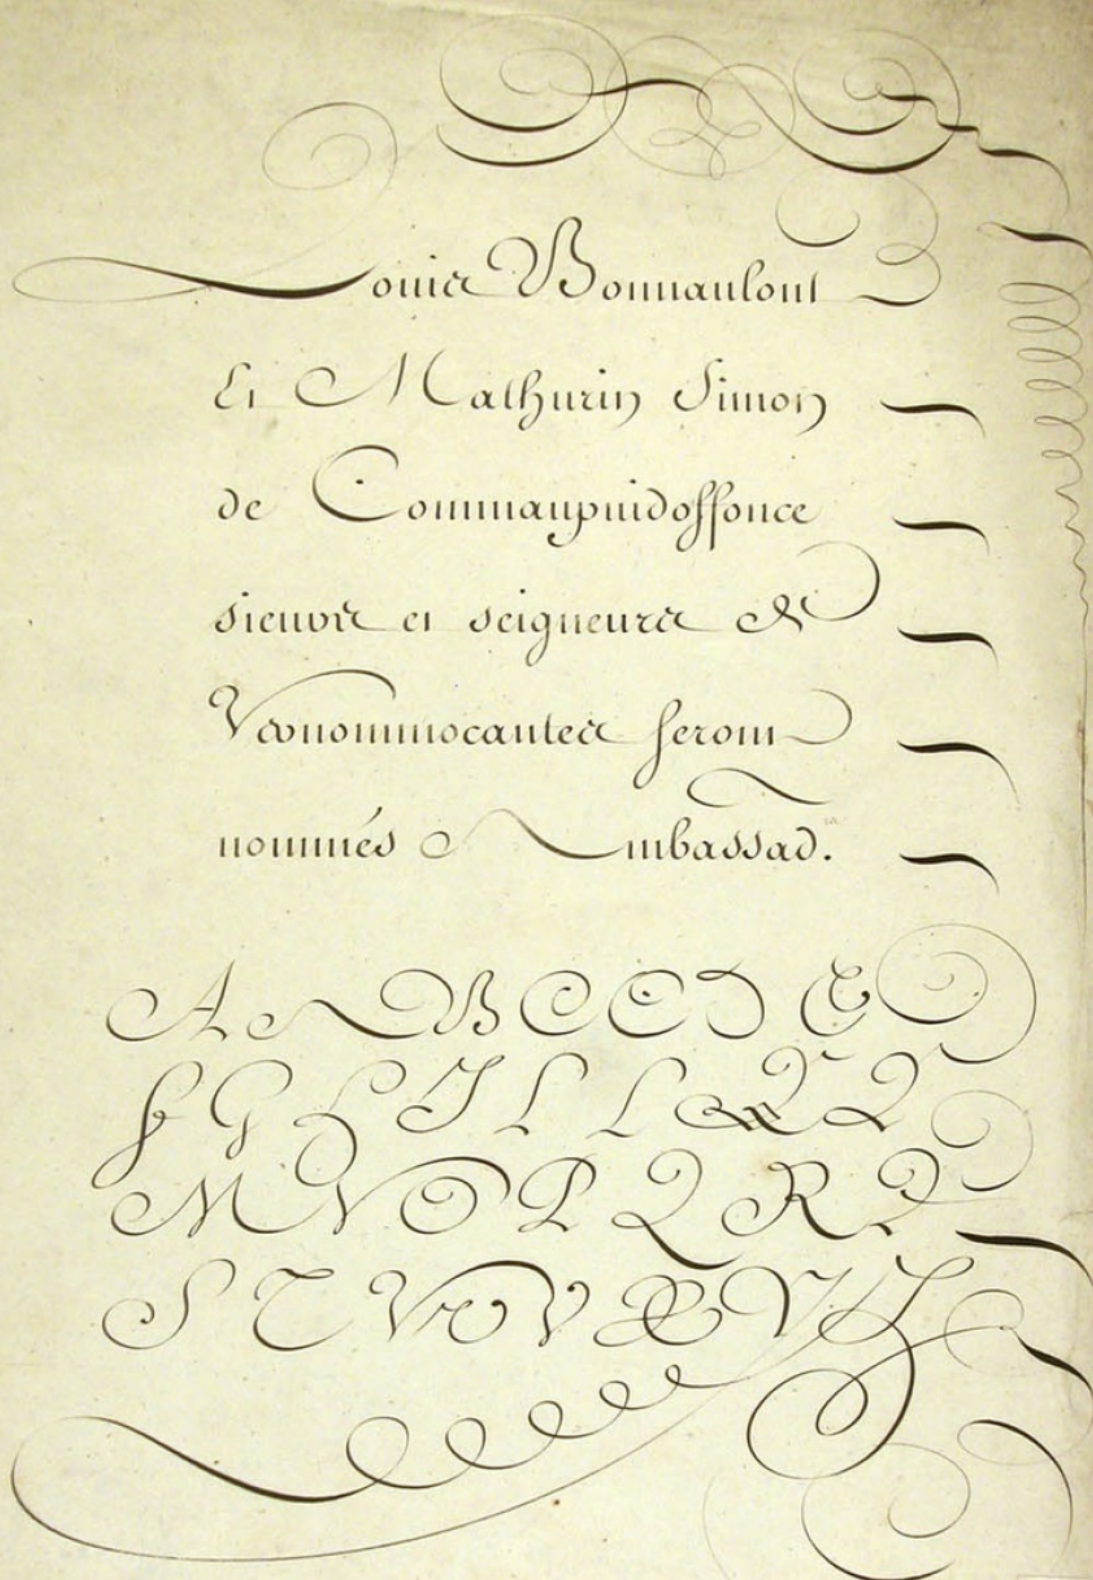 Louis Bonnaulont
Et Mathurin Simon
de Commanpuidoffonce
sieurs et seigneurs de
Vronommocantes seront
nommés Ambassad.
A A B C C D E
F G H I L L K L
M N O P Q R R
S T V V X Y Z